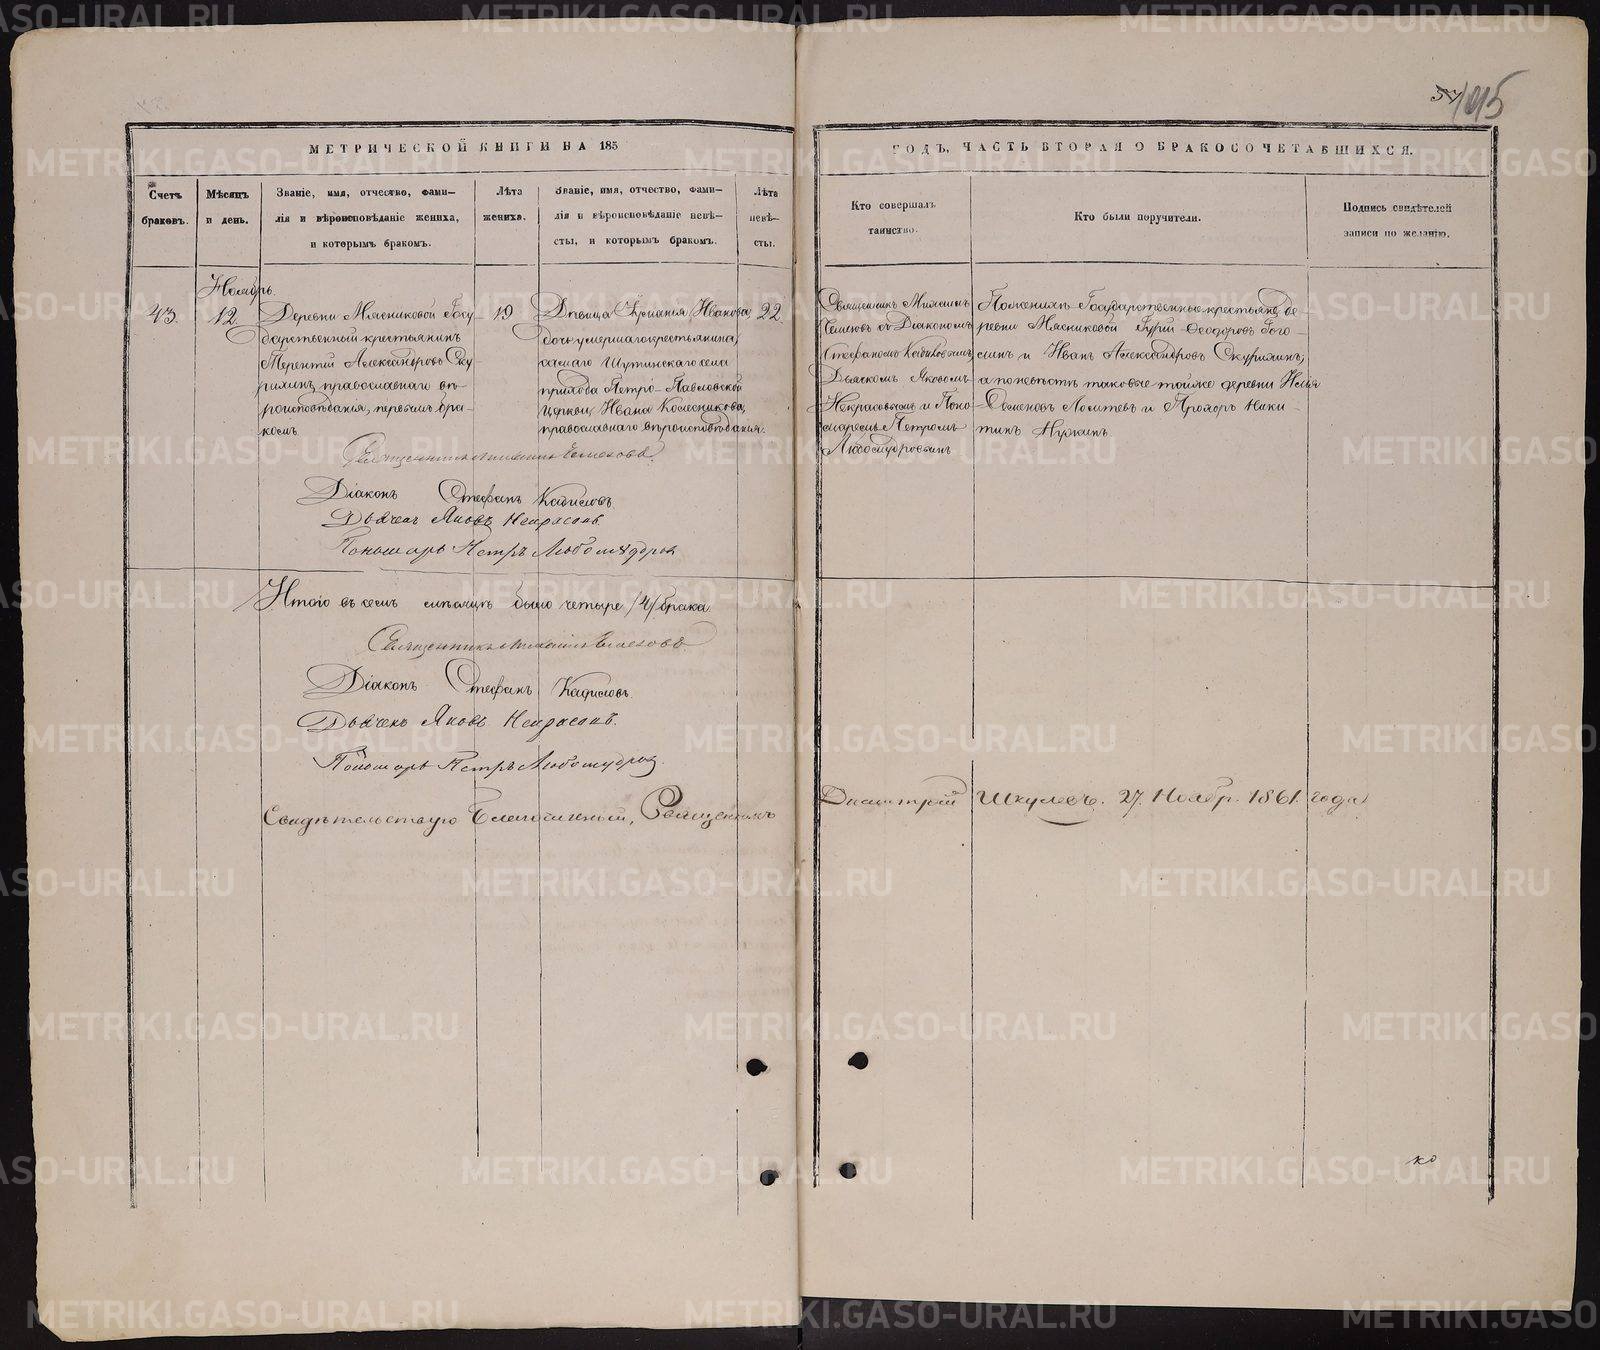 57 105
МЕТРИЧЕСКОЙ КНИГИ НА 185
ГОДЪ, ЧАСТЬ ВТОРАЯ О БРАКОСОЧЕТАВШИХСЯ.
Счетъ
браковъ.
Мѣсяцъ
и день.
Званіе, имя, отчество, фами-
лія и вѣроисповѣданіе жениха,
и которымъ бракомъ.
Лѣта
жениха.
Званіе, имя, отчество, фами-
лія и вѣроисповѣданіе невѣ-
сты, и которымъ бракомъ.
Лѣта
невѣ-
сты.
Кто совершалъ
таинство.
Кто были поручители.
Подпись свидѣтелей
записи по желанію.
Ноябрь.
43.
12.
Деревни Мясниковой Госу
дарственный крестьянинъ
Терентій Александровъ Ску
рихинъ, православнаго вѣ-
роисповѣданія, первымъ бра-
комъ.
19
Дѣвица Иванова,
дочь умершаго крестьянина,
Шутинскаго села
прихода Петро-Павловской
церкви, Ивана Колесникова,
православнаго вѣроисповѣданія.
22.
Священникъ
съ Діакономъ
Стефаномъ
Дьячкомъ Яковомъ
Некрасовымъ и Поно-
маремъ Петромъ
Любомудровымъ
По женихѣ Государственные крестьяне, де-
ревни Мясниковой Гурій Ѳеодоровъ
и Иванъ Александровъ Скурихинъ,
а по невѣстѣ таковые-же той же деревни Илья
и Прохоръ Ники-
тинъ
Священникъ
Діаконъ Стефанъ
Дьячекъ Яковъ Некрасовъ.
Пономарь Петръ Любомудровъ
Итого въ семъ мѣсяцѣ было четыре /4/ брака.
Священникъ
Діаконъ Стефанъ
Дьячекъ Яковъ Некрасовъ.
Пономарь Петръ Любомудровъ.
Свидѣтельствую Благочинный, Священникъ
Димитрій 27. Ноябр. 1861. года
METRIKI.GASO-URAL.RU